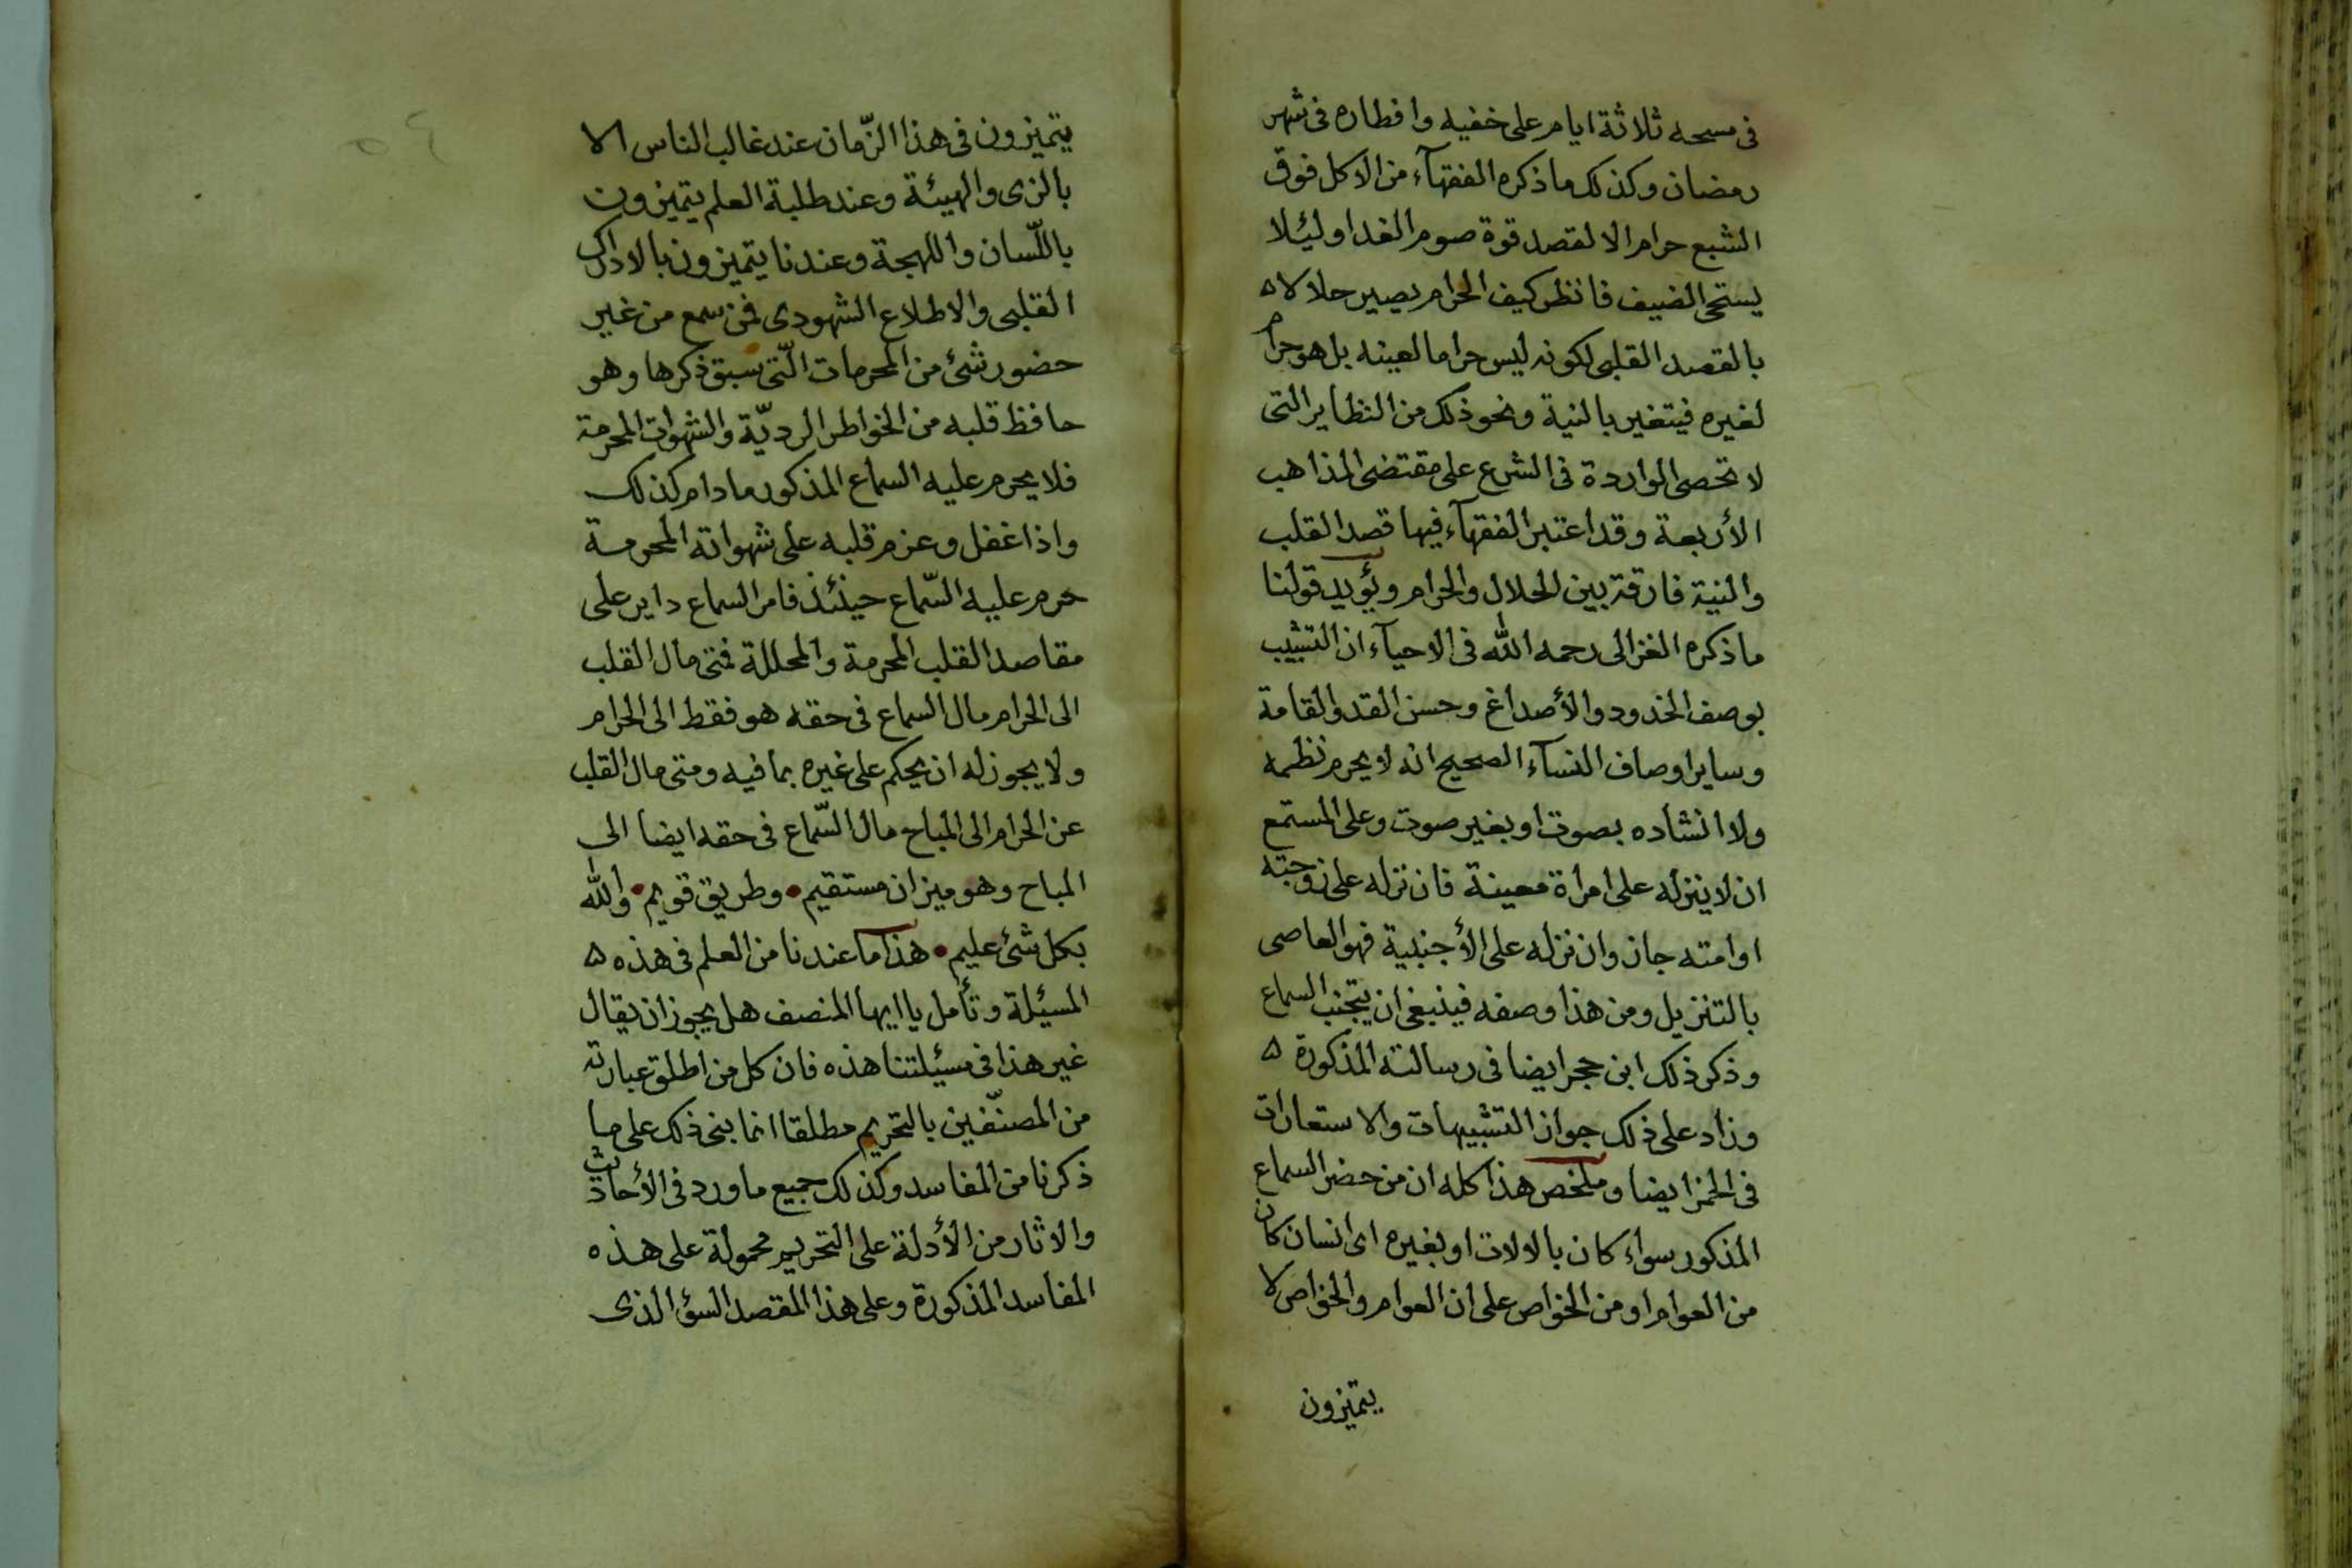 فى مسحه ثلاثة ايام على خفيه وافطاره فى شهر
رمضان وكذلك ما ذكره الفقهآء من الاكل فوق
الشبع حرام الا لقصد قوة صوم الغد اوليئلا
يستحى الضيف فانظر كيف الحرام يصير حلالا ه
بالقصد القلبى لكونه ليس حراما لعينه بل هو حرام
لغيره فيتغير بالنية ونحو ذلك من النظاير التى
لا تحصى الواردة فى الشرع على مقتضى المذاهب
الأربعة وقد اعتبر الفقهآء فيها قصد القلب
والنية فارقة بين الحلال والحرام ويؤيد قولنا
ما ذكره الغزالى رحمه الله فى الاحيآء ان التشبيب
بوصف الخدود والأصداغ وحسن القد والقامة
وساير اوصاف النسآء الصحيح انه لا يحرم نظمه
ولا انشاده بصوت او بغير صوت وعلى المستمع
ان لا ينزله على امراة معينة فان نزله على زوجته
او امته جاز وان نزله على الأجنبية فهو العاصى
بالتنزيل ومن هذا وصفه فينبغى ان يتجنب السماع
وذكر ذلك ابن حجر ايضا فى رسالته المذكورة ه
وزاد على ذلك جواز التشبيهات والاستعارات
فى الخمر ايضا وملخص هذا كله ان من حضر السماع
المذكور سواء كان بالالات او بغيره اى انسان كان
من العوام او من الخواص على ان العوام والخواص لا
يتميزون
يتميزون فى هذا الزّمان عند غالب الناس الا
بالزى والهيئة وعند طلبة العلم يتميزون
باللّسان واللهجة وعندنا يتميزون بالادراك
القلبى والاطلاع الشهودى فمن سمع من غير
حضور شئ من المحرمات الّتى سبق ذكرها وهو
حافظ قلبه من الخواطر الرديّة والشهوات المحرمة
فلا يحرم عليه السماع المذكور ما دام كذلك
واذا غفل وعزم قلبه على شهواته المحرمة
حرم عليه السّماع حينئذ فامر السماع داير على
مقاصد القلب المحرمة والمحللة فمتى مال القلب
الى الحرام مال السماع فى حقه هو فقط الى الحرام
ولا يجوز له ان يحكم على غيره بما فيه ومتى مال القلب
عن الحرام الى المباح مال السّماع فى حقه ايضا الى
المباح وهو ميزان مستقيم • وطريق قويم • والله
بكل شئ عليم • هذا ما عندنا من العلم فى هذه ه
المسيئلة وتأمل يا ايها المنصف هل يجوز ان يقال
غير هذا فى مسيئلتنا هذه فان كل من اطلق عبارته
من المصنّفين بالتحريم مطلقا انما بنى ذلك على ما
ذكرنا من المفاسد وكذلك جميع ما ورد فى الأحاديث
والاثار من الأدلة على التحريم محمولة على هذه
المفاسد المذكورة وعلى هذا المقصد السؤ الذى